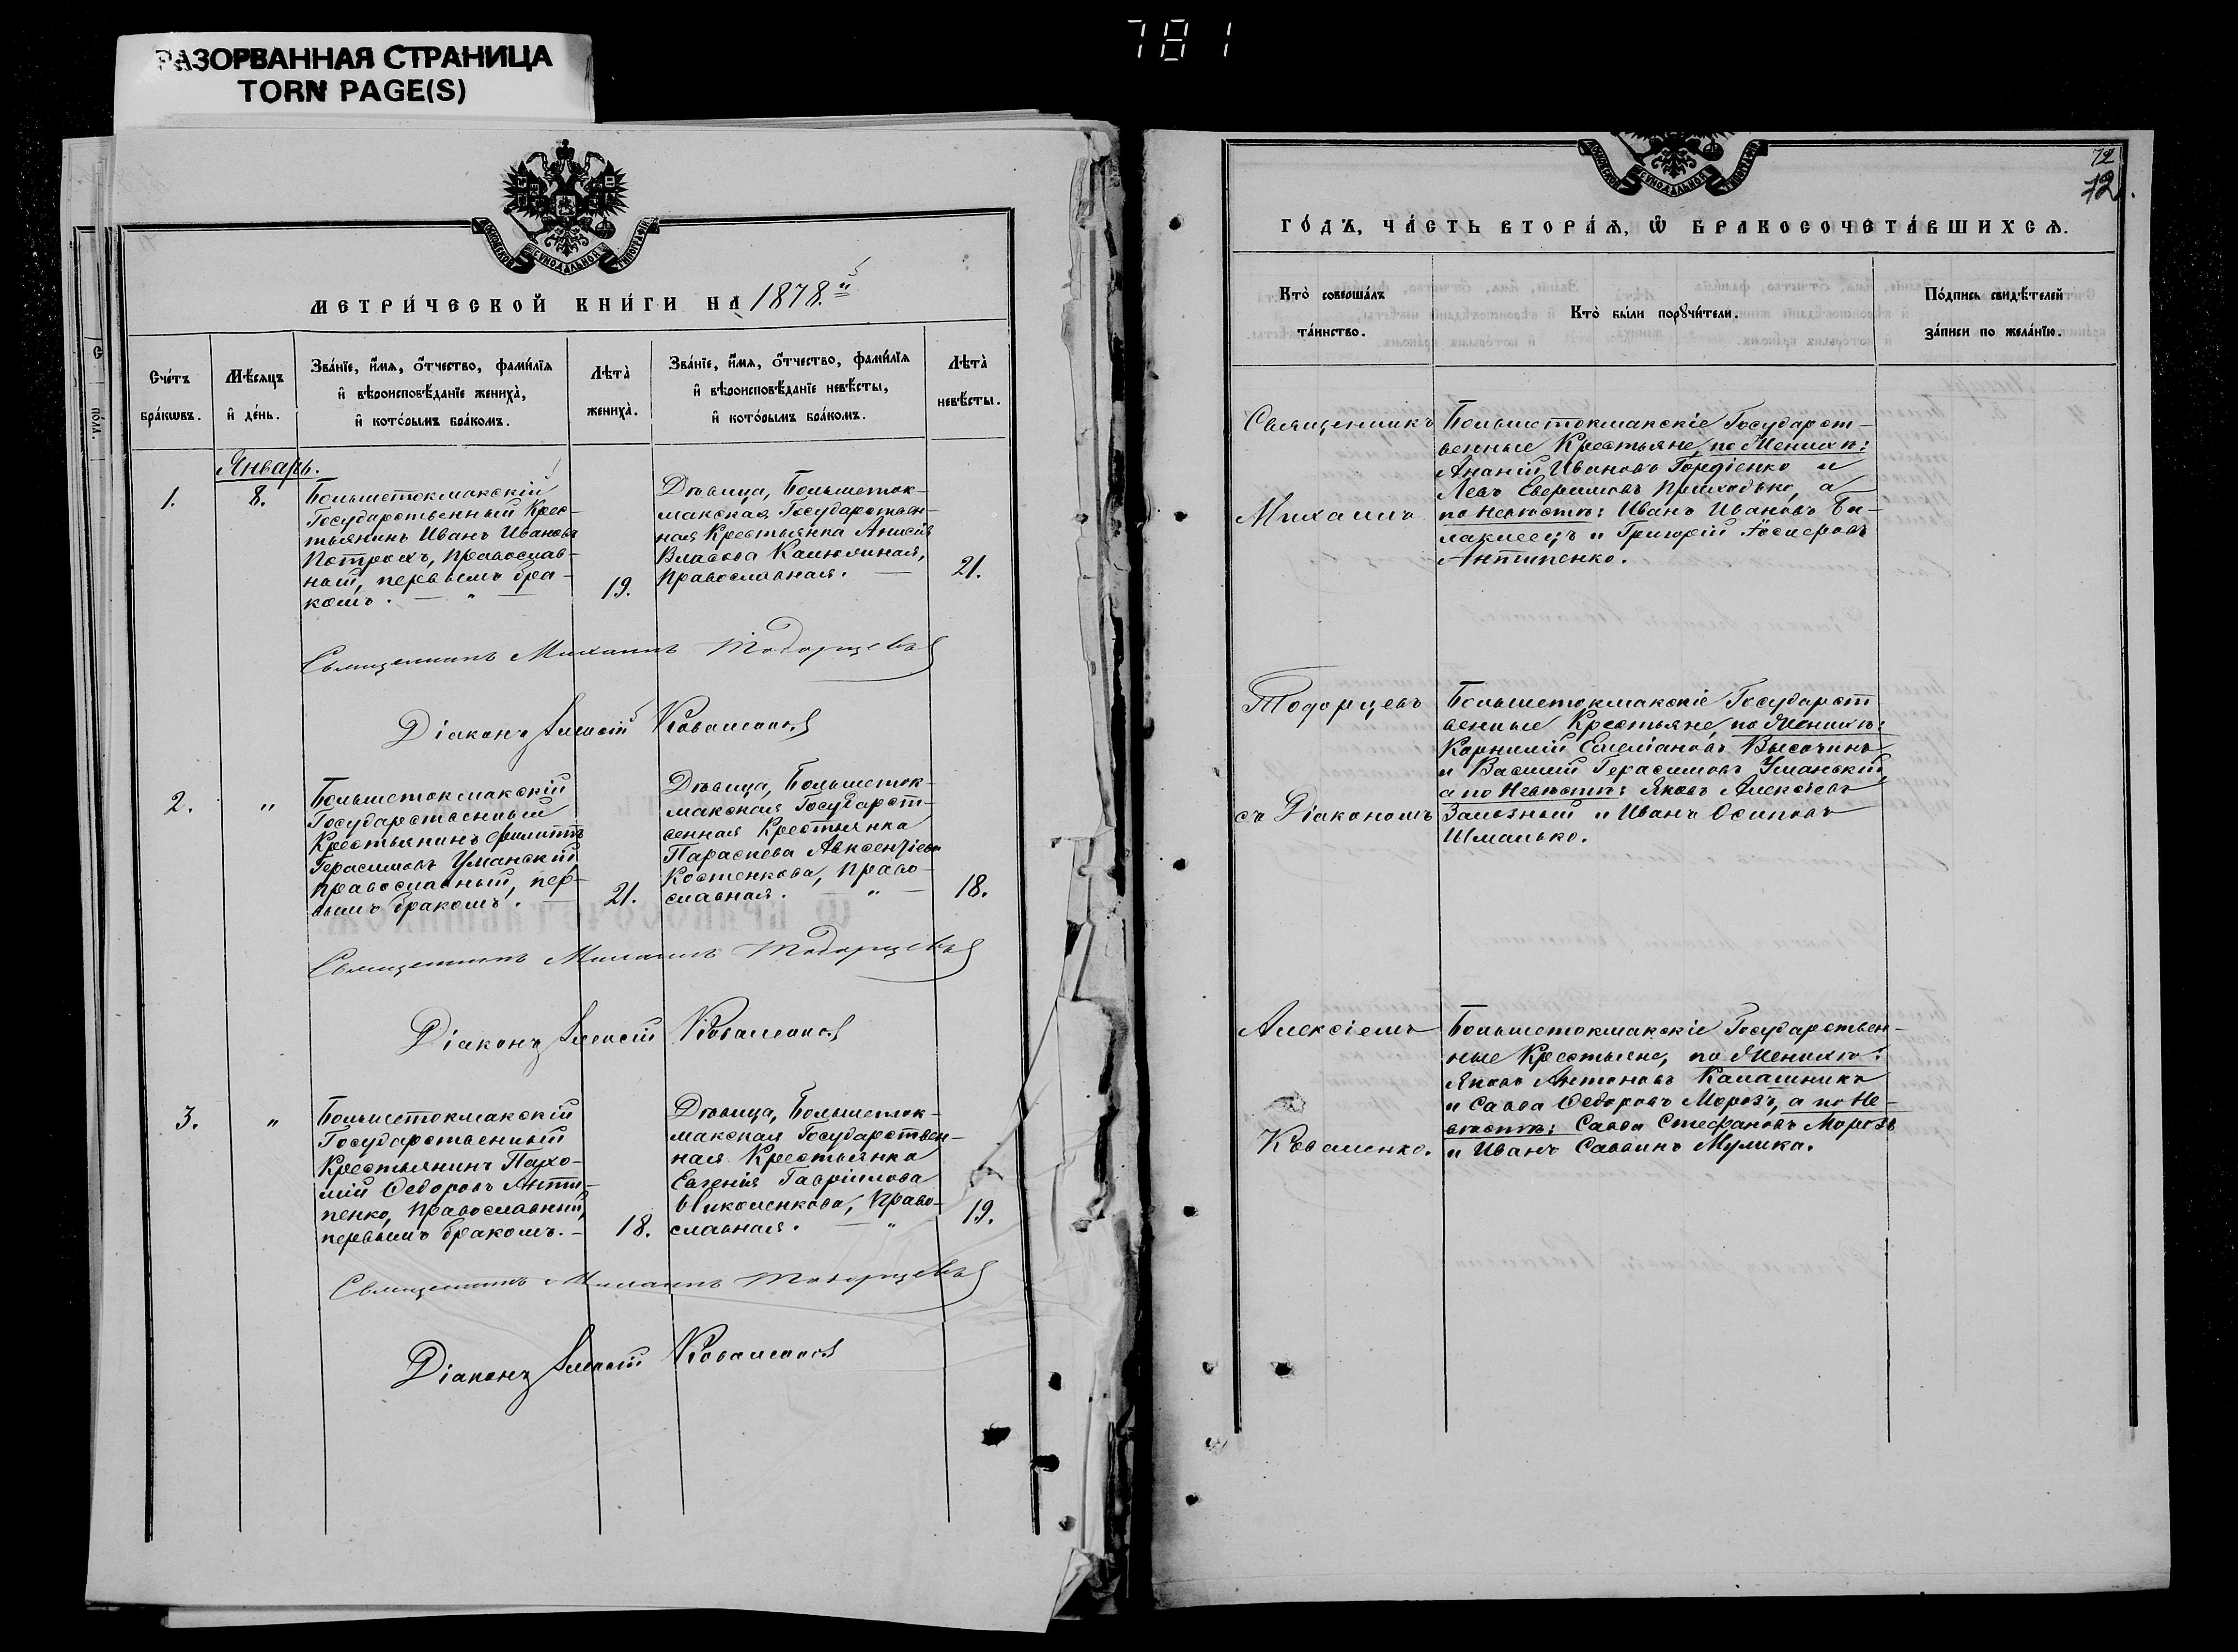 781
РАЗОРВАННАЯ СТРАНИЦА
TORN PAGE(S)
МОСКОВСКОЙ СѴНОДАЛЬНОЙ ТИПОГРАФІИ
МЕТРИ́ЧЕСКОЙ КНИ́ГИ НА 1878.й
Сче́тъ
бра́кѡвъ.
Мѣ́сяцъ
и҆ де́нь.
Зва́нїе, и҆́мѧ, ѻ҆́тчество, фами́лїѧ
и҆ вѣроисповѣ́данїе жениха̀,
и҆ кото́рымъ бра́комъ.
Лѣта̀
жениха̀.
Зва́нїе, и҆́мѧ, ѻ҆́тчество, фами́лїѧ
и҆ вѣроисповѣ́данїе невѣ́сты,
и҆ кото́рымъ бра́комъ.
Лѣта̀
невѣ́сты.
Январь.
1.
8.
Большетокмакскій
Государственный Крес-
тьянинъ Иванъ Ивановъ
Петрохъ, православ-
ный, первымъ бра-
комъ. — " —
19.
Дѣвица, Большеток-
макская Государствен-
ная Крестьянка Анисія
Власова Калюжная,
православная. —
21.
Священникъ Михаилъ Тодорцевъ
Діаконъ Алексій Коваленко
2.
"
Большетокмакскій
Государственный
Крестьянинъ Филиппъ
Герасимовъ Уманскій
православный, пер-
вымъ бракомъ. —
21.
Дѣвица, Большеток-
макская Государст-
венная Крестьянка
Параскева Авксентіева
Костенкова, право-
славная. — " —
18.
Священникъ Михаилъ Тодорцевъ
Діаконъ Алексій Коваленко
3.
"
Большетокмакскій
Государственный
Крестьянинъ Пахо-
мій Ѳедоровъ Анти-
пенко, православный,
первымъ бракомъ. —
18.
Дѣвица, Большеток-
макская Государствен-
ная Крестьянка
Евгенія Гавріилова
право-
славная. — "
19.
Священникъ Михаилъ Тодорцевъ
Діаконъ Алексій Коваленко
МОСКОВСКОЙ СѴНОДАЛЬНОЙ ТИПОГРАФІИ
72
72.
ГО́ДЪ, ЧА́СТЬ ВТОРА́Ѧ, Ѡ҆ БРАКОСОЧЕТА́ВШИХСѦ.
Кто̀ соверша́лъ
та́инство.
Кто̀ бы́ли порꙋчи́тели.
По́дпись свидѣ́телей
за́писи по жела́нїю.
Священникъ
Михаилъ
Тодорцевъ
съ Діакономъ
Алексіемъ
Коваленко.
Большетокмакскіе Государст-
венные Крестьяне, по Женихѣ:
Ананій Ивановъ Гордіенко и
Левъ Ефремовъ Приходько, а
по Невѣстѣ: Иванъ Ивановъ Ба-
лаклеецъ и Григорій
Антипенко.
Большетокмакскіе Государст
венные Крестьяне, по Женихѣ:
Корнилій Емеліановъ Высочинъ
и Василій Герасимовъ Уманьскій,
а по Невѣстѣ: Яковъ Алексіевъ
Зализный и Иванъ Осиповъ
Шманько.
Большетокмакскіе Государствен-
ные Крестьяне, по Женихѣ:
Яковъ Антоновъ Калашникъ
и Савва Ѳедоровъ Морозъ, а по Не-
вѣстѣ: Савва Стефановъ Морозъ
и Иванъ Саввинъ Мулика.